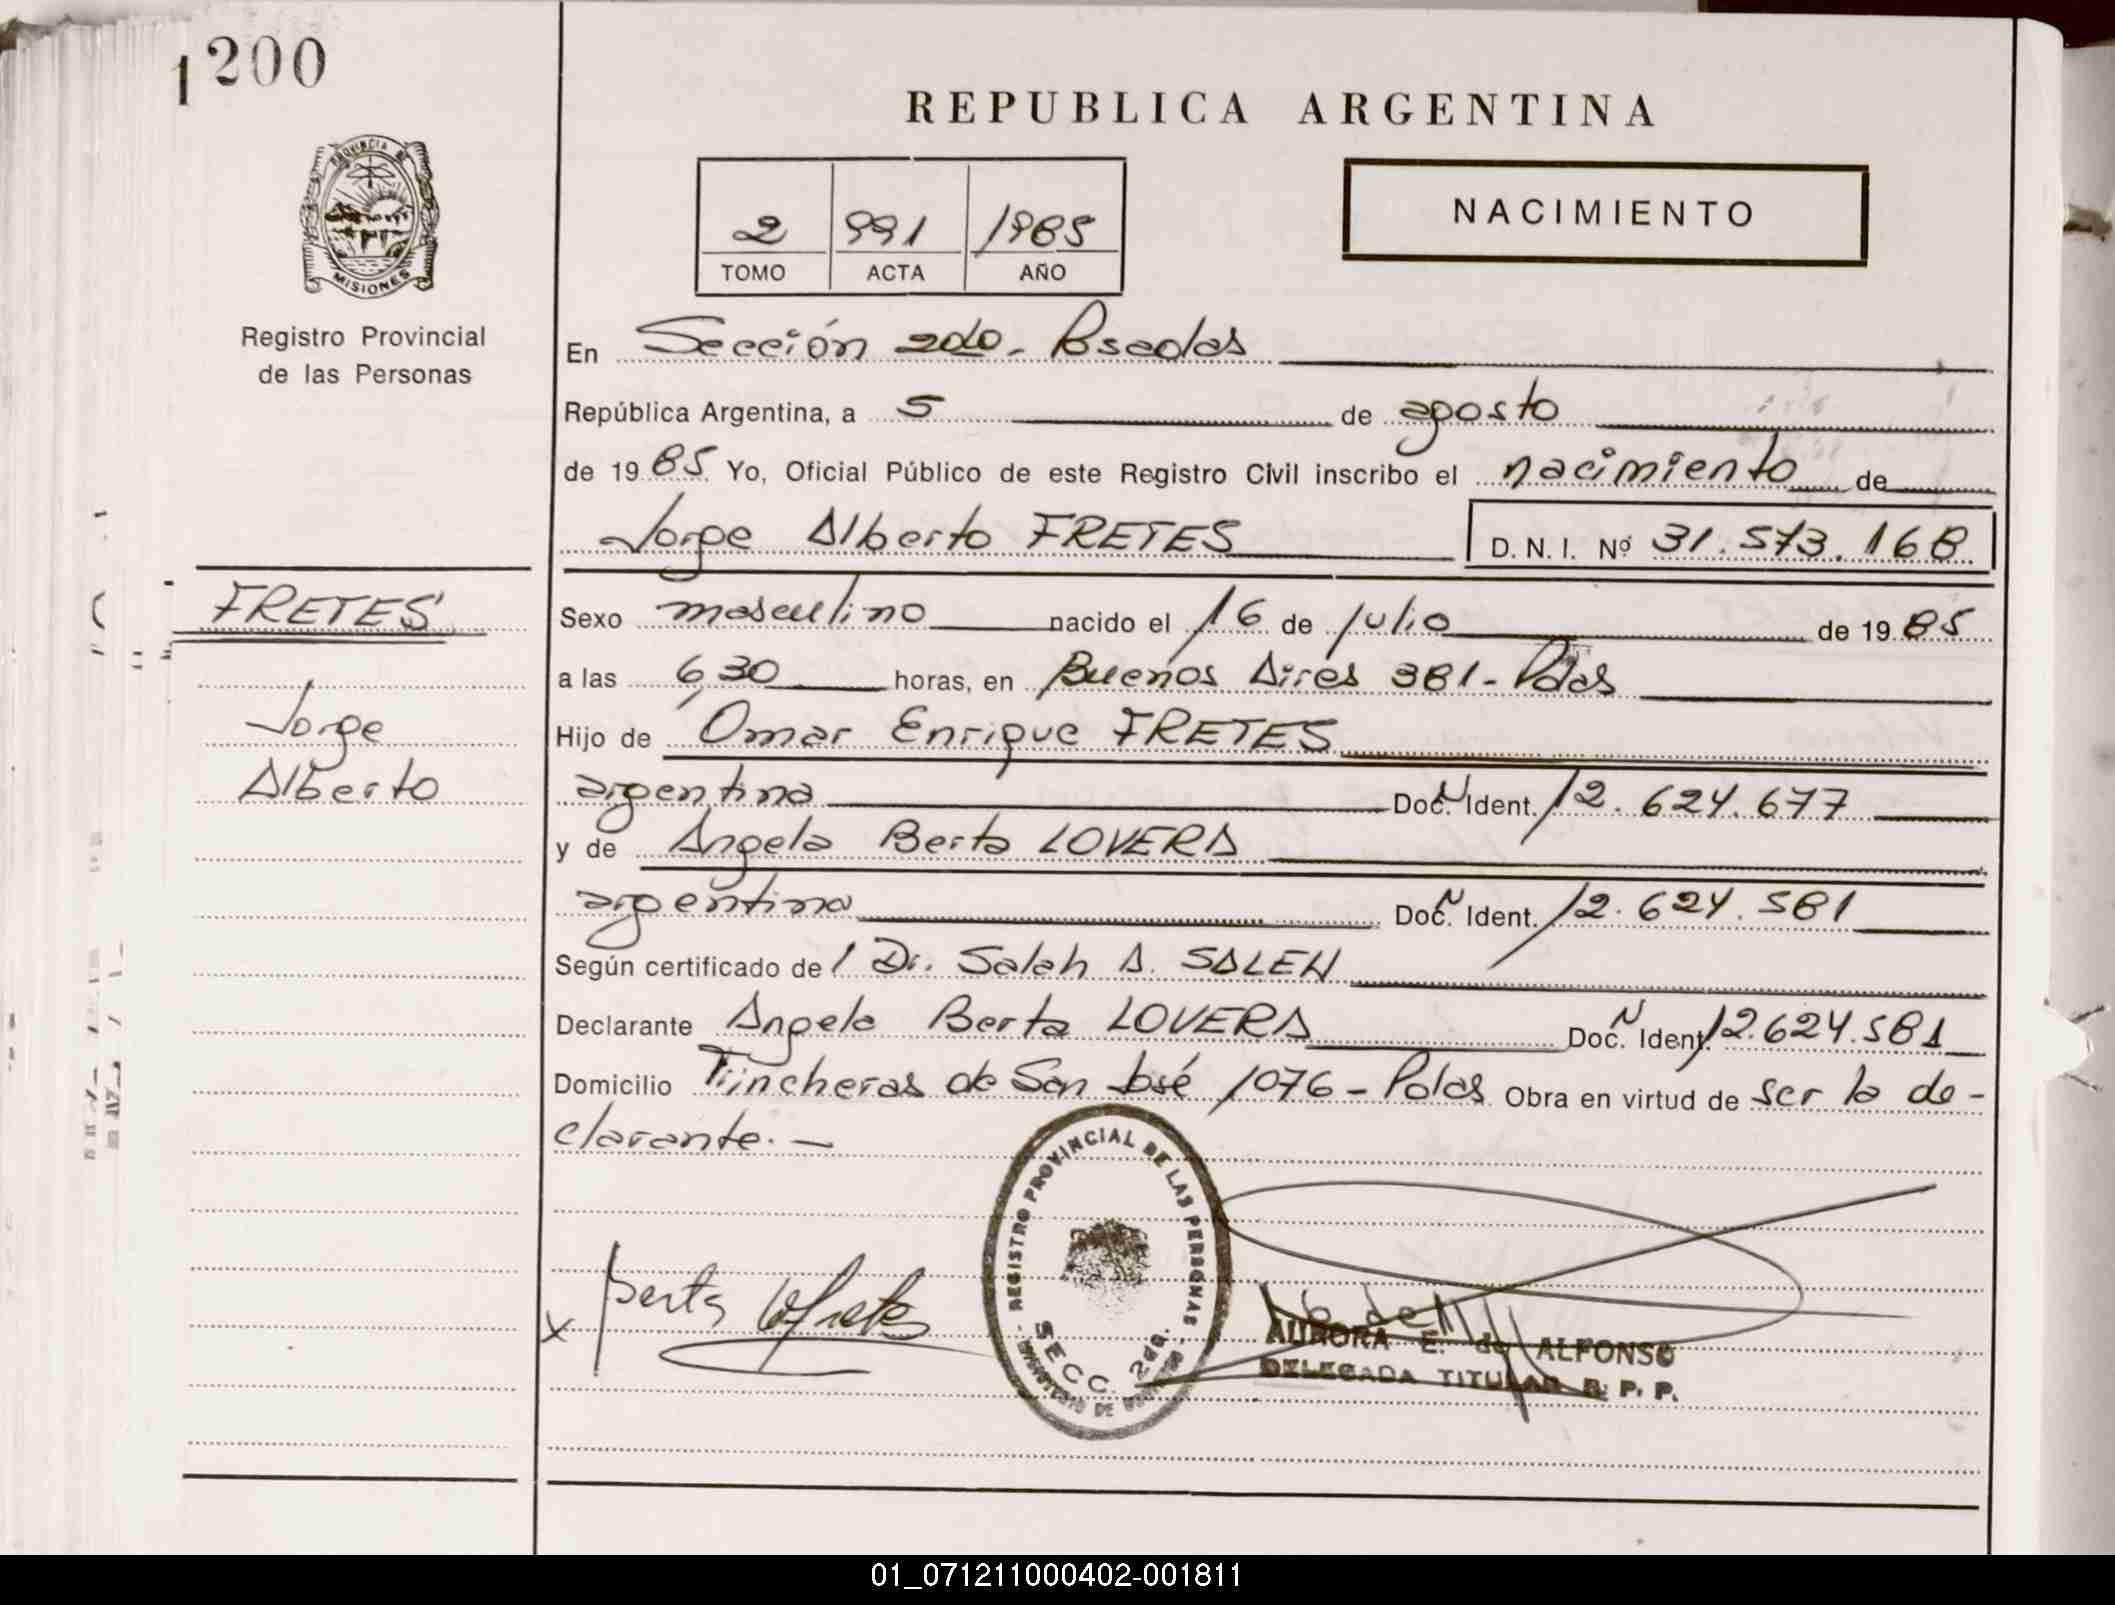 1 200
PROVINCIA DE
MISIONES
Registro Provincial
de las Personas
FRETES
Jorge
Alberto
REPUBLICA ARGENTINA
2 991 1985
TOMO ACTA AÑO
NACIMIENTO
En Sección 2da - Posadas
República Argentina, a 5 de agosto
de 1985 Yo, Oficial Público de este Registro Civil inscribo el nacimiento de
Jorge Alberto FRETES D. N. I. Nº 31.573.168
Sexo masculino nacido el 16 de julio de 1985
a las 6,30 horas, en Buenos Aires 381 - Pdas
Hijo de Omar Enrique FRETES
argentina Doc. N Ident. 12.624.677
y de Angela Berta LOVERA
argentina Doc. N Ident. 12.624.581
Según certificado de / Dr. Salah A. SALEH
Declarante Angela Berta LOVERA Doc. N Ident. 12.624.581
Domicilio Trincheras de San José 1076 - Pdas Obra en virtud de ser la de-
clarante. -
REGISTRO PROVINCIAL DE LAS PERSONAS
SECC. 2da.
x Berta
AURORA E. de ALFONSO
DELEGADA TITULAR R. P. P.
01_071211000402-001811